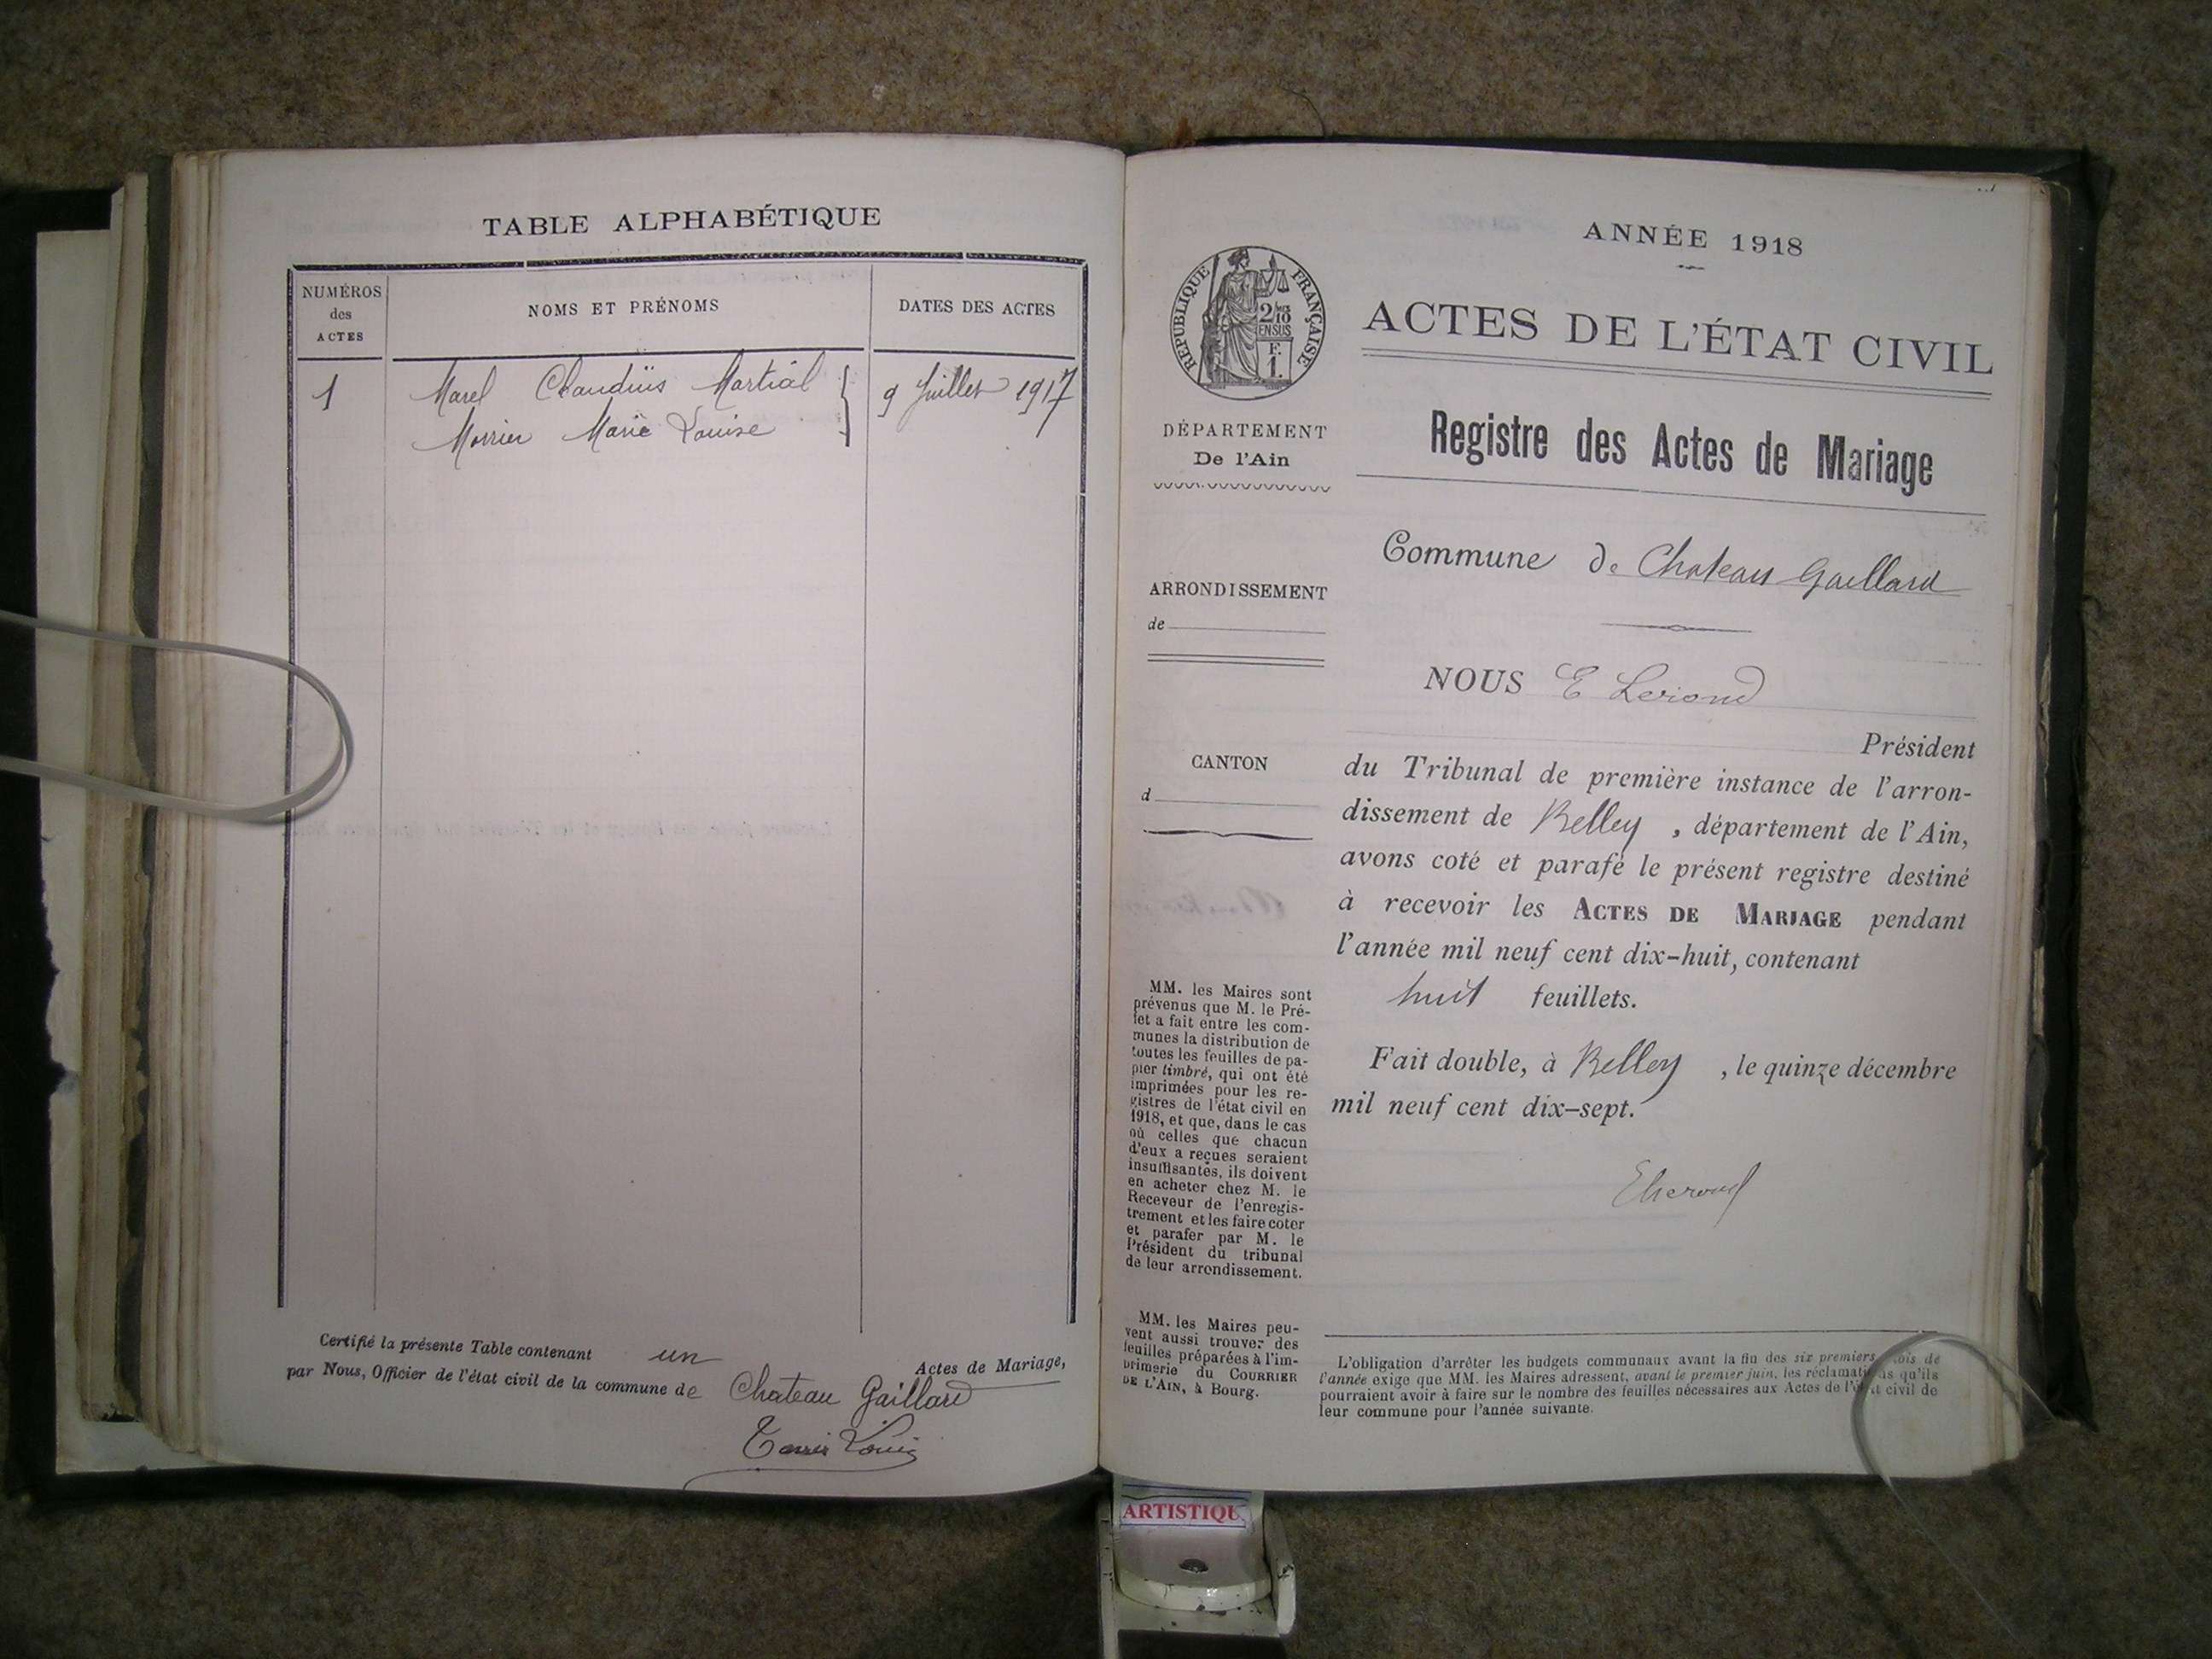 TABLE ALPHABÉTIQUE
NUMÉROS
des
ACTES
NOMS ET PRÉNOMS
DATES DES ACTES
1 Marel Claudiüs Martial 9 Juillet 1917
Morrier Marie Louise
Certifié la présente Table contenant un Actes de Mariage,
par Nous, Officier de l'état civil de la commune de Chateau Gaillard
Louis
ANNÉE 1918
RÉPUBLIQUE FRANÇAISE
2/10
EN SUS
F.
1.
ACTES DE L'ÉTAT CIVIL
DÉPARTEMENT
De l'Ain
Registre des Actes de Mariage
Commune de Chateau Gaillard
ARRONDISSEMENT
de
NOUS E
Président
CANTON
d
du Tribunal de première instance de l'arron-
dissement de Belley, département de l'Ain,
avons coté et parafé le présent registre destiné
à recevoir les ACTES DE MARIAGE pendant
l'année mil neuf cent dix-huit, contenant
huit feuillets.
Fait double, à Belley, le quinze décembre
mil neuf cent dix-sept.
MM. les Maires sont
prévenus que M. le Pré-
fet a fait entre les com-
munes la distribution de
toutes les feuilles de pa-
pier timbré, qui ont été
imprimées pour les re-
gistres de l'état civil en
1918, et que, dans le cas
où celles que chacun
d'eux a reçues seraient
insuffisantes, ils doivent
en acheter chez M. le
Receveur de l'enregis-
trement et les faire coter
et parafer par M. le
Président du tribunal
de leur arrondissement.
MM. les Maires peu-
vent aussi trouver des
feuilles préparées à l'im-
primerie du COURRIER
DE L'AIN, à Bourg.
L'obligation d'arrêter les budgets communaux avant la fin des six premiers mois de
l'année exige que MM. les Maires adressent, avant le premier juin, les réclamations qu'ils
pourraient avoir à faire sur le nombre des feuilles nécessaires aux Actes de l'état civil de
leur commune pour l'année suivante.
ARTISTIQU